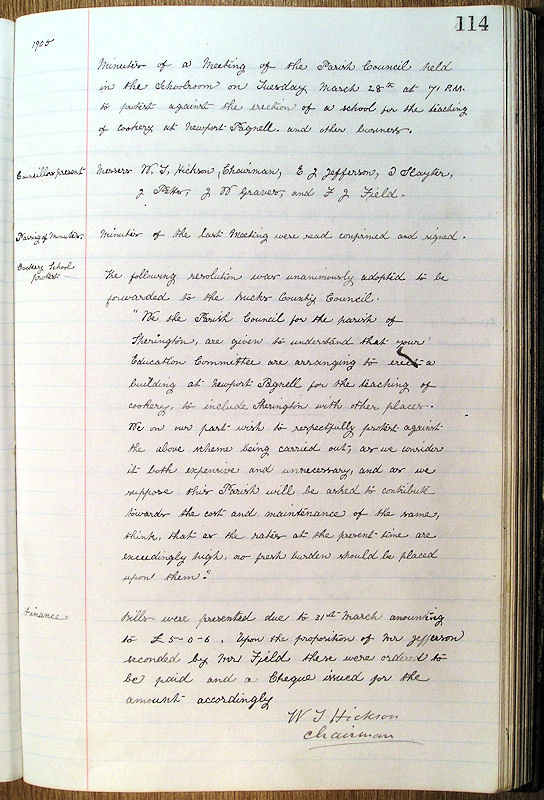 114
1905
Minutes of a Meeting of the Parish Council held
in the Schoolroom on Tuesday March 28th at 7 P.M.
to protest against the erection of a school for the teaching
of cookery at Newport Pagnell. and other business.
Councillors present
Messers W. T. Hickson, Chairman, E. J. Jefferson, J Slayter,
J W Graves, and F J Field.
Passing of Minutes.
Minutes of the last Meeting were read confirmed and signed.
Cookery School
protest
The following resolution was unanimously adopted to be
forwarded to the Bucks County Council.
"We the Parish Council for the parish of
Sherington, are given to understand that your
Education Committee are arranging to erect a
building at Newport Pagnell for the teaching of
cookery, to include Sherington with other places.
We on our part wish to respectfully protest against
the above scheme being carried out, as we consider
it both expensive and unnecessary, and as we
suppose this Parish will be asked to contribute
towards the cost and maintenance of the same,
think, that as the rates at the present time are
exceedingly high, no fresh burden should be placed
upon them."
Finance
Bills were presented due to 31st March amounting
to £5-0-6. Upon the proposition of Mr Jefferson
seconded by Mr Field these were ordered to
be paid and a Cheque issued for the
amount accordingly
W T Hickson
Chairman